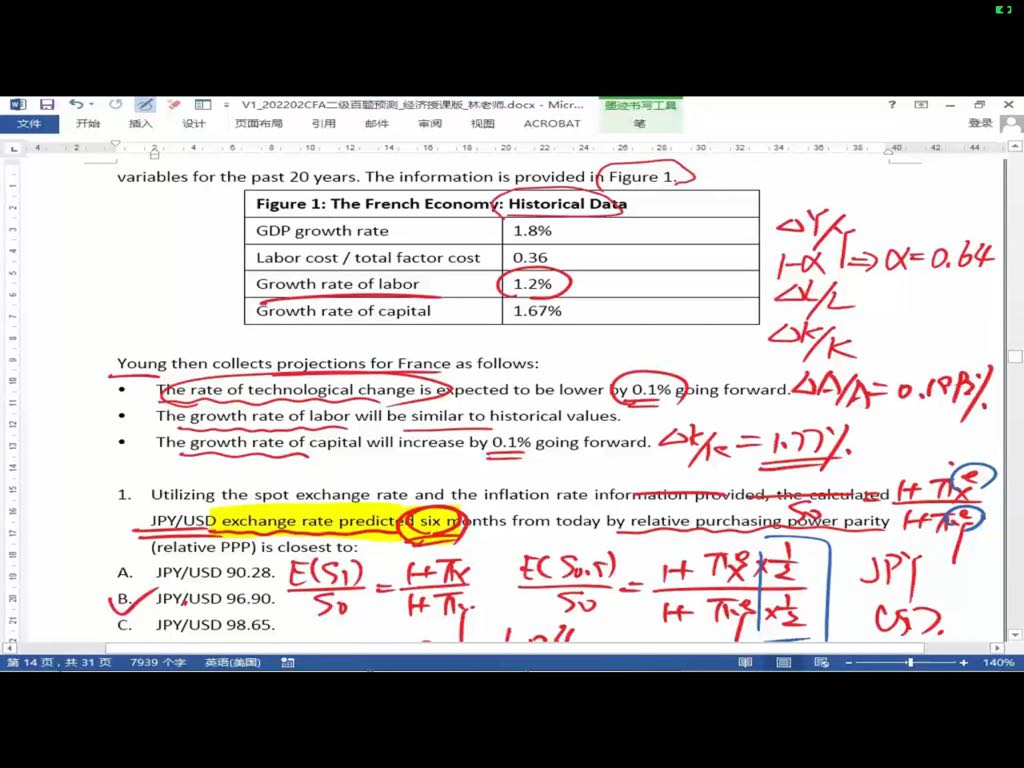 V1_202202CFA二级百题预测_经济授课版_林老师.docx - Micr...
墨迹书写工具
?
文件 开始 插入 设计 页面布局 引用 邮件 审阅 视图 ACROBAT 笔 登录
4 2 2 4 6 8 10 12 14 16 18 20 22 24 26 28 30 32 34 36 38 40 42 44
variables for the past 20 years. The information is provided in Figure 1.
Figure 1: The French Economy: Historical Data
GDP growth rate 1.8% ΔY/Y
Labor cost / total factor cost 0.36 1-α ⇒ α=0.64
Growth rate of labor 1.2% ΔL/L
Growth rate of capital 1.67% ΔK/K
Young then collects projections for France as follows:
• The rate of technological change is expected to be lower by 0.1% going forward. ΔA/A=0.193%
• The growth rate of labor will be similar to historical values.
• The growth rate of capital will increase by 0.1% going forward. ΔK/K = 1.77%
1. Utilizing the spot exchange rate and the inflation rate information provided, the calculated
JPY/USD exchange rate predicted six months from today by relative purchasing power parity
(relative PPP) is closest to:
A. JPY/USD 90.28.
B. JPY/USD 96.90.
C. JPY/USD 98.65.
E(S1)/S0 = 1+πx/1+πy
E(S0.5)/S0 = 1+πx^e×1/2 / 1+πy^e×1/2
JPY
USD
第 14 页，共 31 页 7939 个字 英语(美国) 140%